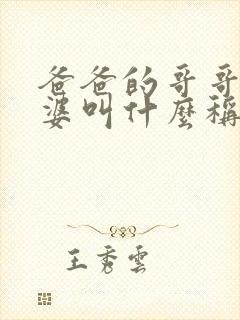 爸爸的哥哥
婆叫什麼稱
王秀雲